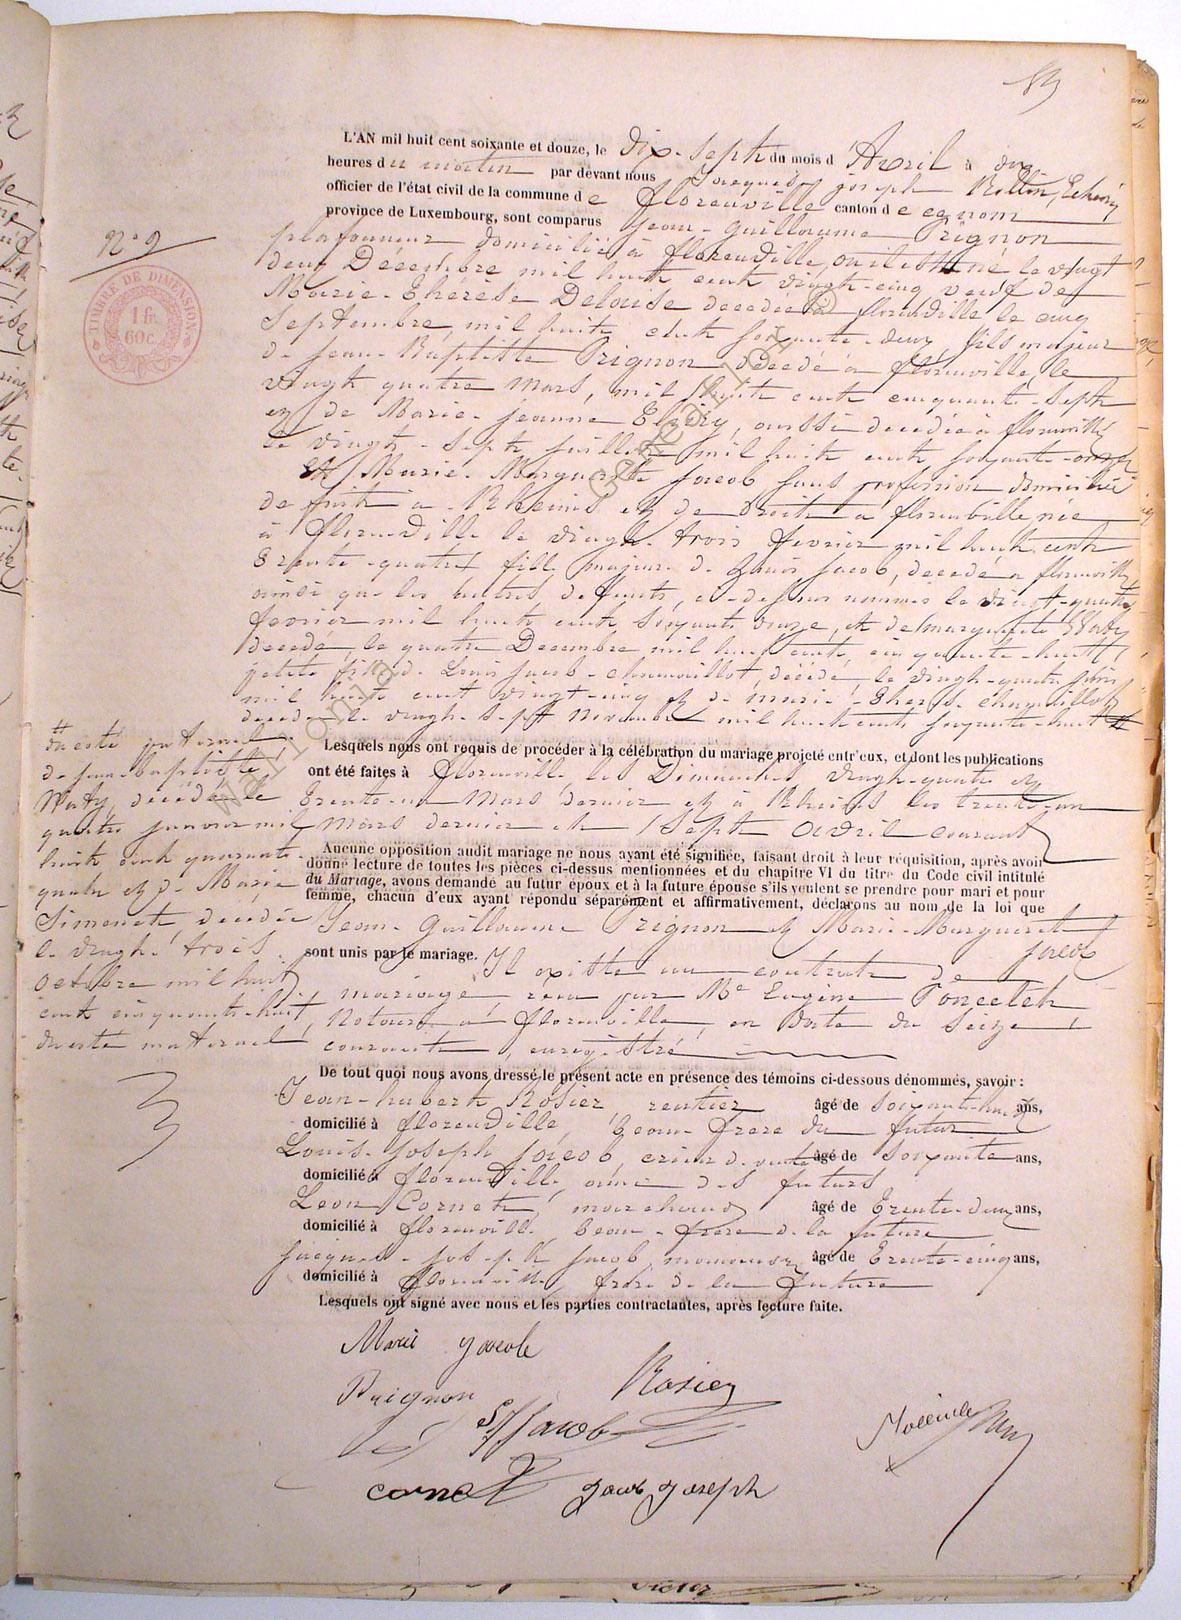 N° 9
TIMBRE DE DIMENSION
1 fr.
60 c.
L'AN mil huit cent soixante et douze, le dix-sept du mois d'Avril à dix
heures du matin par devant nous Jacques Joseph Rollin, Echevin
officier de l'état civil de la commune de florenville canton de egnom
province de Luxembourg, sont comparus Jean-Guillaume Prignon
plafonneur domicilié à florenville, où il est né le vingt
deux Décembre mil huit cent vingt-cinq veuf de
Marie-Thérèse Delaise decedée à florenville le cinq
Septembre, mil huit cent soixante-deux, fils majeur
de Jean-Baptiste Prignon décédé à florenville, le
vingt quatre mars, mil huit cent cinquante-sept
et de Marie-Jeanne, aussi decedée à florenville
le vingt-sept juillet mil huit cent soixante-onze
Et Marie-Marguerite Jacob sans profession domiciliée
de fait à Rheims et de droit à florenville née
à florenville le vingt-trois fevrier mil huit cent
trente-quatre fille majeure de Jacob, decédé à florenville
ainsi que les autres defunts, ci-dessus nommés le vingt-quatre
fevrier mil huit cent soixante onze, et de marguerite Waty
decedé, le quatre Decembre mil huit cent cinquante-huit
petite fille de Louis Jacob-chanvillot, décédé, le vingt-quatre juin
mil huit cent vingt-cinq et de marie-therese chanvillot
decedée le vingt-sept novembre mil huit cent soixante-huit #
# du coté paternel
de jean baptiste
Waty, décédé le
quatre janvier mil
huit cent quarante-
quatre et de Marie
Simonet, décédée
le vingt-trois
octobre mil huit
cent cinquante-huit,
du coté maternel
Lesquels nous ont requis de procéder à la célébration du mariage projeté entr'eux, et dont les publications
ont été faites à florenville les Dimanches vingt-quatre et
trente-un mars dernier et à Rheims les trente-un
mars dernier et sept avril courant
Aucune opposition audit mariage ne nous ayant été signifiée, faisant droit à leur réquisition, après avoir
donné lecture de toutes les pièces ci-dessus mentionnées et du chapitre VI du titre du Code civil intitulé
du Mariage, avons demandé au futur époux et à la future épouse s'ils veulent se prendre pour mari et pour
femme, chacun d'eux ayant répondu séparément et affirmativement, déclarons au nom de la loi que
Jean-Guillaume Prignon et Marie-Marguerite
Jacob
sont unis par le mariage. Il existe un contrat de
mariage, reçu par Me Eugène Poncelet
Notaire à florenville, en date du Seize
courant, enregistré
De tout quoi nous avons dressé le présent acte en présence des témoins ci-dessous dénommés, savoir :
Jean-hubert Rosier, rentier âgé de soixante-huit ans,
domicilié à florenville, beau-frere du futur
Louis-Joseph Jacob, crieur de vente âgé de soixante ans,
domicilié à florenville, ami des futurs
Leon Cornet, marchand âgé de Trente-deux ans,
domicilié à florenville, beau-frere de la future
Jacques-Joseph Jacob, menuisier âgé de Trente-cinq ans,
domicilié à florenville, frere de la future
Lesquels ont signé avec nous et les parties contractantes, après lecture faite.
Marie Jacob
Prignon
Rosier
Jacob
Cornet
Jacob Joseph